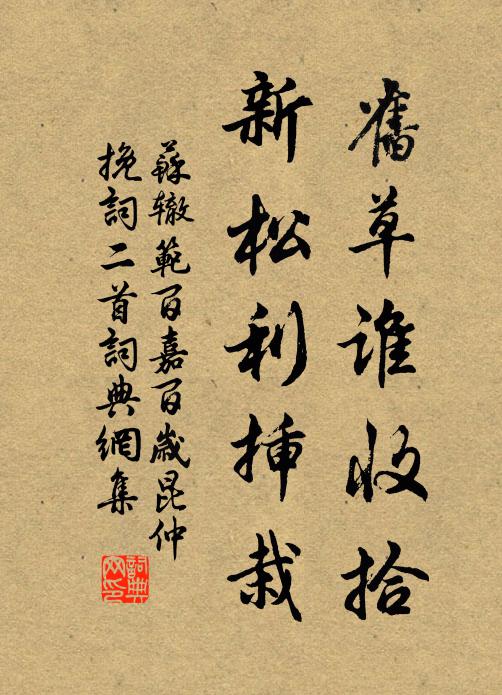 舊草誰收拾
新松利揷栽
蘇辙範百嘉百歲昆仲
挽詞二首詞典網集
詞典网印